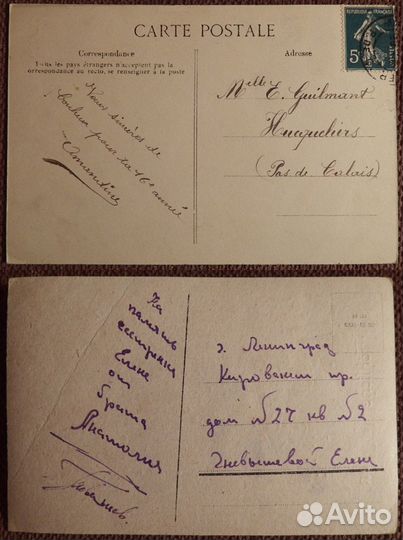 CARTE POSTALE
Correspondance
Tous les pays étrangers n'acceptent pas la
correspondance au recto, se renseigner à la poste
Adresse
Vœux sincères de
bonheur pour ta 16e année
Amandine
Melle E. Guilmant
Hucqueliers
(Pas de Calais)
На
память
сестрички
Елене
от
брата
Анатолия
г. Ленинград
Кировский пр.
дом №27 кв №2
Гневышевой Елене
Avito